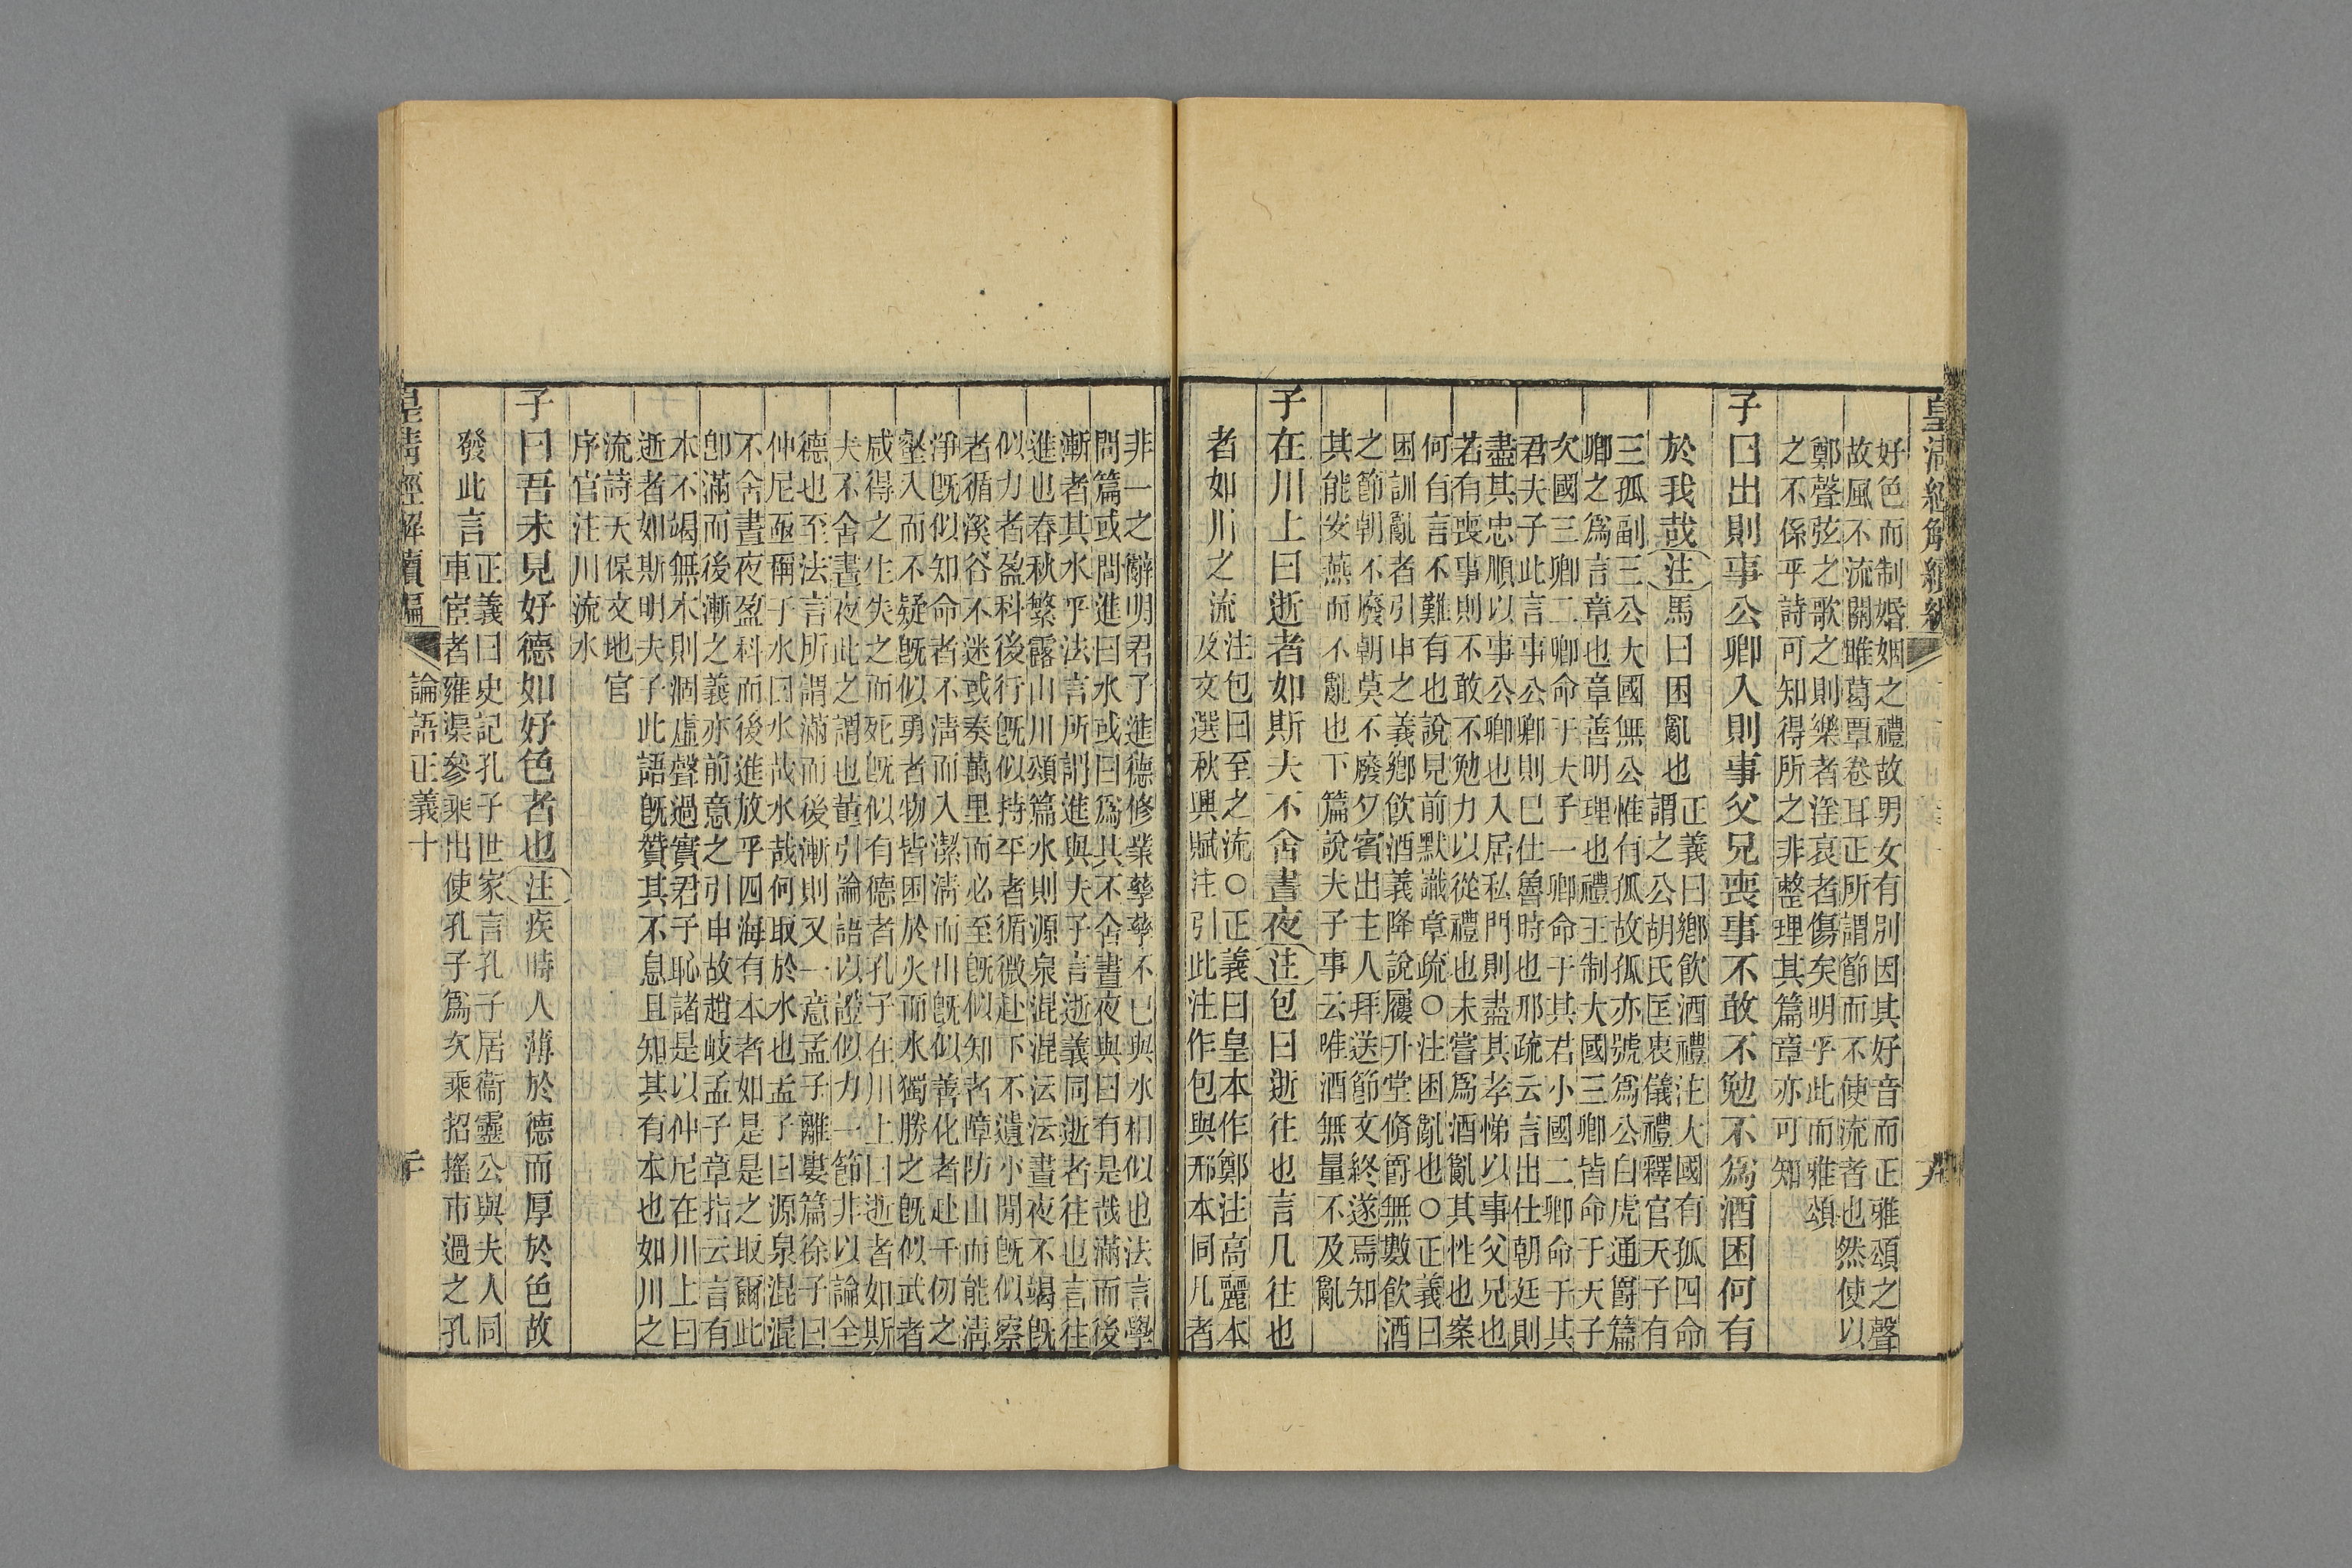 皇清經解續編
好色而制婚姻之禮故男女有別因其好音而正雅頌之聲
故風不流關雎葛覃卷耳正所謂節而不使流者也然使以
鄭聲弦之歌之則樂者淫哀者傷矣明乎此而雅頌
之不係乎詩可知得所之非整理其篇章亦可知
子曰出則事公卿入則事父兄喪事不敢不勉不爲酒困何有
於我哉注馬曰困亂也
正義曰鄉飲酒禮注大國有孤四命
謂之公胡氏匡衷儀禮釋官天子有
三孤副三公大國無公惟有孤故孤亦號爲公白虎通爵篇
卿之爲言章也章善明理也禮王制大國三卿皆命于天子
次國三卿二卿命于天子一卿命于其君小國二卿命于其
君夫子此言事公卿則已仕魯時也邢疏云言出仕朝廷則
盡其忠順以事公卿也入居私門則盡其孝悌以事父兄也
若有喪事則不敢不勉力以從禮也未嘗爲酒亂其性也案
何有言不難有也說見前默識章疏○注困亂也○正義曰
困訓亂者引申之義鄉飲酒義降說屨升堂脩爵無數飲酒
之節朝不廢朝莫不廢夕賓出主人拜送節文終遂焉知
其能安燕而不亂也下篇說夫子事云唯酒無量不及亂
子在川上曰逝者如斯夫不舍晝夜注包曰逝往也言凡往也
者如川之流
注包曰至之流○正義曰皇本作鄭注高麗本
及文選秋興賦注引此注作包與邢本同凡者
非一之辭明君子進德修業孳孳不已與水相似也法言學
問篇或問進曰水或曰爲其不舍晝夜與曰有是哉滿而後
漸者其水乎法言所謂進與夫子言逝義同逝者往也言往
進也春秋繁露山川頌篇水則源泉混混沄沄晝夜不竭既
似力者盈科後行既似持平者循微赴下不遺小閒既似察
者循溪谷不迷或奏萬里而必至既似知者障防山而能淸
淨既似知命者不淸而入潔淸而出既似善化者赴千仞之
壑入而不疑既似勇者物皆困於火而水獨勝之既似武者
咸得之生失之而死既似有德者孔子在川上曰逝者如斯
夫不舍晝夜此之謂也董引論語以證似力一節非以論全
德也至法言所謂滿而後漸則又一意孟子離婁篇徐子曰
仲尼亟稱于水曰水哉水哉何取於水也孟子曰源泉混混
不舍晝夜盈科而後進放乎四海有本者如是是之取爾此
卽滿而後漸之義亦前意之引申故趙岐孟子章指云言有
本不竭無本則涸虛聲過實君子恥諸是以仲尼在川上曰
逝者如斯明夫子此語既贊其不息且知其有本也如川之
流詩天保文地官
序官注川流水
子曰吾未見好德如好色者也注疾時人薄於德而厚於色故
發此言
正義曰史記孔子世家言孔子居衞靈公與夫人同
車宦者雍渠參乘出使孔子爲次乘招搖市過之孔
皇清經解續編
論語正義十